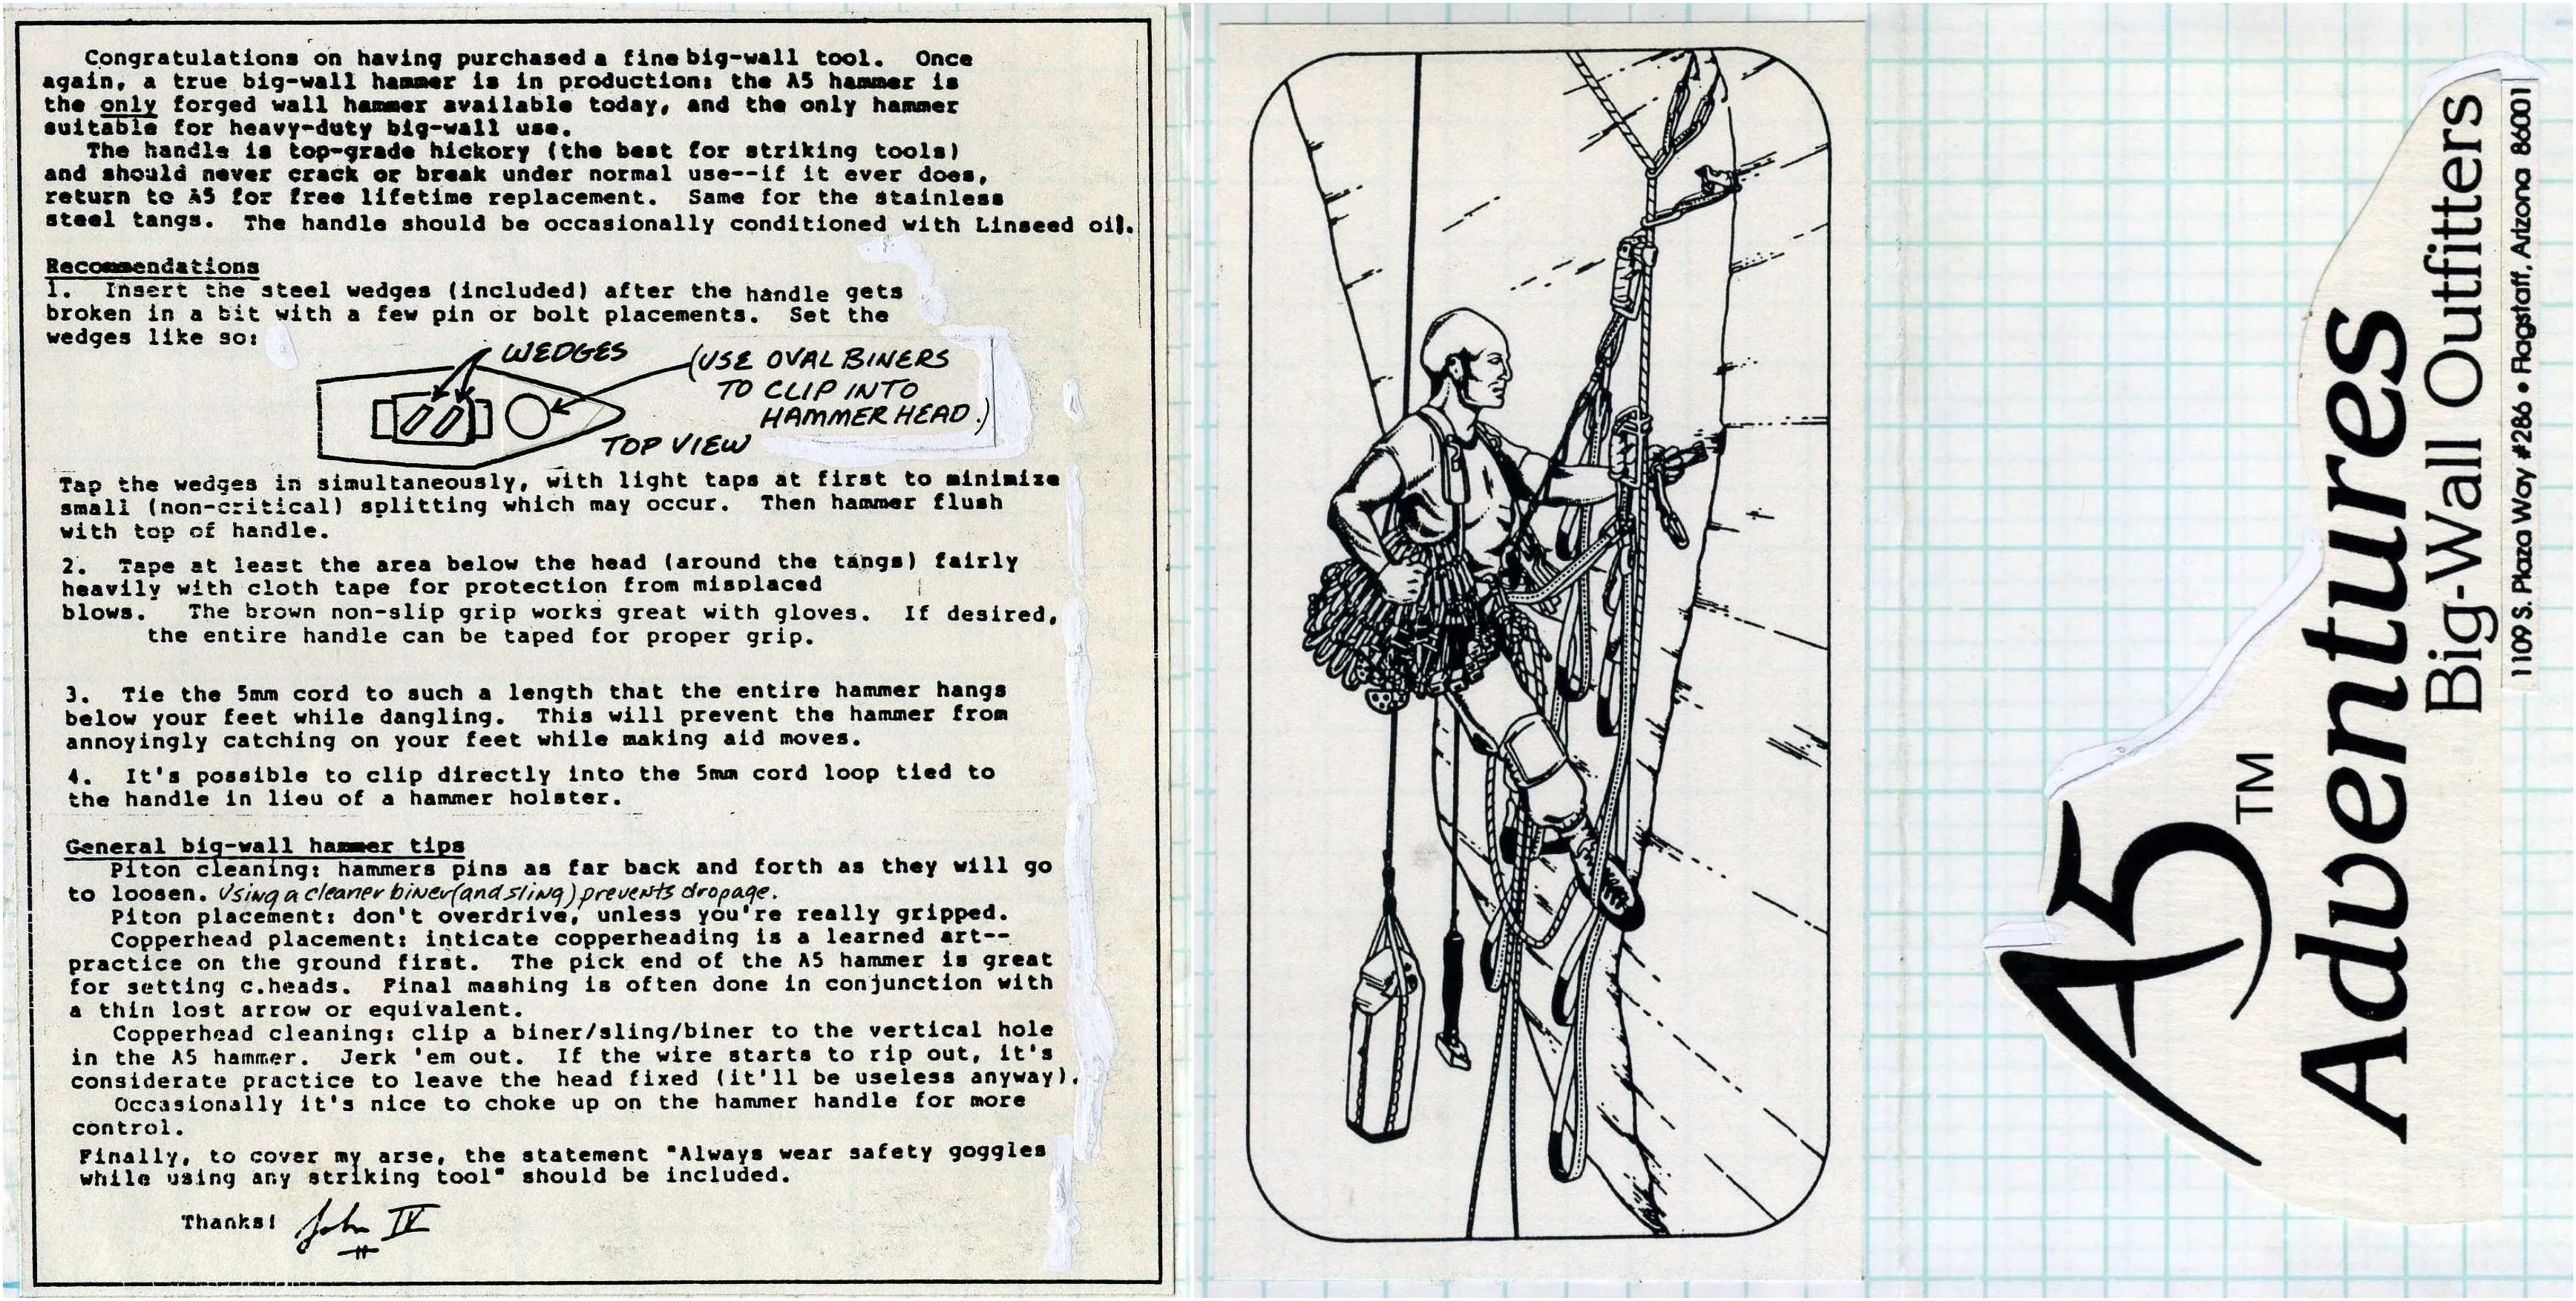 Congratulations on having purchased a fine big-wall tool. Once
again, a true big-wall hammer is in production: the A5 hammer is
the only forged wall hammer available today, and the only hammer
suitable for heavy-duty big-wall use.
The handle is top-grade hickory (the best for striking tools)
and should never crack or break under normal use--if it ever does,
return to A5 for free lifetime replacement. Same for the stainless
steel tangs. The handle should be occasionally conditioned with Linseed oil.
Recommendations
1. Insert the steel wedges (included) after the handle gets
broken in a bit with a few pin or bolt placements. Set the
wedges like so:
WEDGES
(USE OVAL BINERS
TO CLIP INTO
HAMMER HEAD.)
TOP VIEW
Tap the wedges in simultaneously, with light taps at first to minimize
small (non-critical) splitting which may occur. Then hammer flush
with top of handle.
2. Tape at least the area below the head (around the tangs) fairly
heavily with cloth tape for protection from misplaced
blows. The brown non-slip grip works great with gloves. If desired,
the entire handle can be taped for proper grip.
3. Tie the 5mm cord to such a length that the entire hammer hangs
below your feet while dangling. This will prevent the hammer from
annoyingly catching on your feet while making aid moves.
4. It's possible to clip directly into the 5mm cord loop tied to
the handle in lieu of a hammer holster.
General big-wall hammer tips
Piton cleaning: hammers pins as far back and forth as they will go
to loosen. Using a cleaner biner (and sling) prevents dropage.
Piton placement: don't overdrive, unless you're really gripped.
Copperhead placement: inticate copperheading is a learned art--
practice on the ground first. The pick end of the A5 hammer is great
for setting c.heads. Final mashing is often done in conjunction with
a thin lost arrow or equivalent.
Copperhead cleaning: clip a biner/sling/biner to the vertical hole
in the A5 hammer. Jerk 'em out. If the wire starts to rip out, it's
considerate practice to leave the head fixed (it'll be useless anyway).
Occasionally it's nice to choke up on the hammer handle for more
control.
Finally, to cover my arse, the statement "Always wear safety goggles
while using any striking tool" should be included.
Thanks! John IV
A5 TM
Adventures
Big-Wall Outfitters
1109 S. Plaza Way #286 • Flagstaff, Arizona 86001